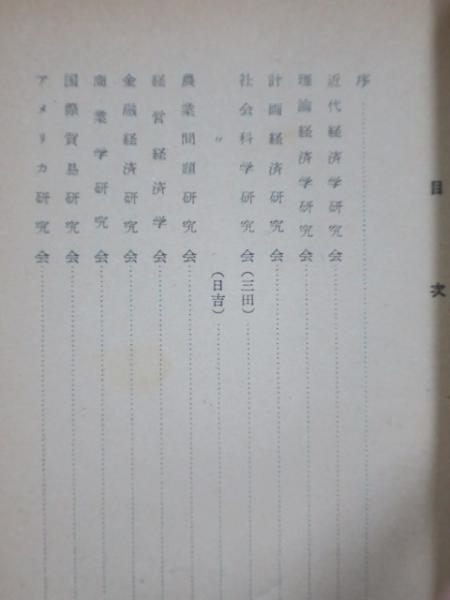 目次
序
近代経済学研究会
理論経済学研究会
計画経済研究会
社会科学研究会(三田)
〃(日吉)
農業問題研究会
経営経済学会
金融経済研究会
商業学研究会
国際貿易研究会
アメリカ研究会